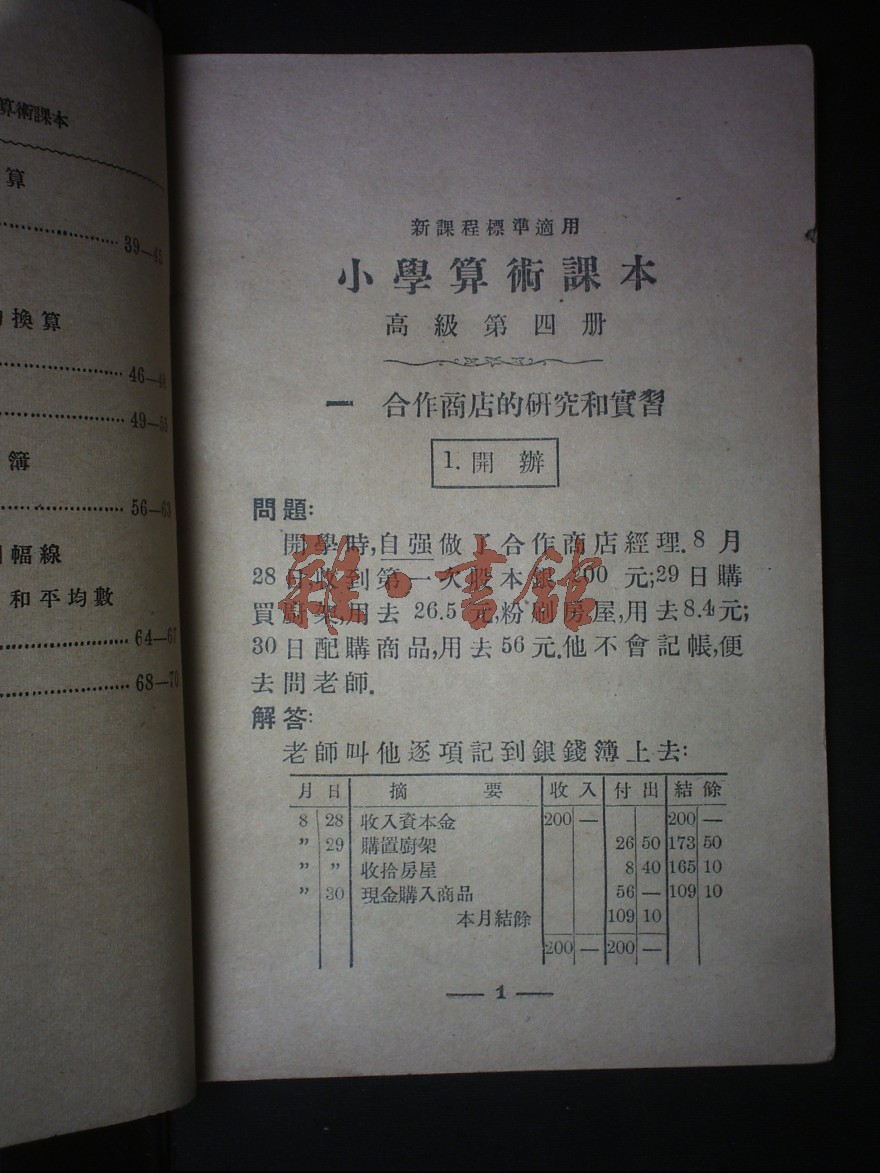 算術課本
算
39—45
換算
46—48
49—55
簿
56—63
幅線
和平均數
64—67
68—70
新課程標準適用
小學算術課本
高級第四册
一 合作商店的研究和實習
1. 開辦
問題:
開學時,自强做了合作商店經理.8月
28日,收到第一次股本銀200元;29日購
買廚架,用去26.5元,粉刷房屋,用去8.4元;
30日配購商品,用去56元.他不會記帳,便
去問老師.
解答:
老師叫他逐項記到銀錢簿上去:
月 日 摘要 收入 付出 結餘
8 28 收入資本金 200 — 200 —
” 29 購置廚架 26 50 173 50
” ” 收拾房屋 8 40 165 10
” 30 現金購入商品 56 — 109 10
本月結餘 109 10
200 — 200 —
— 1 —
雜·書館